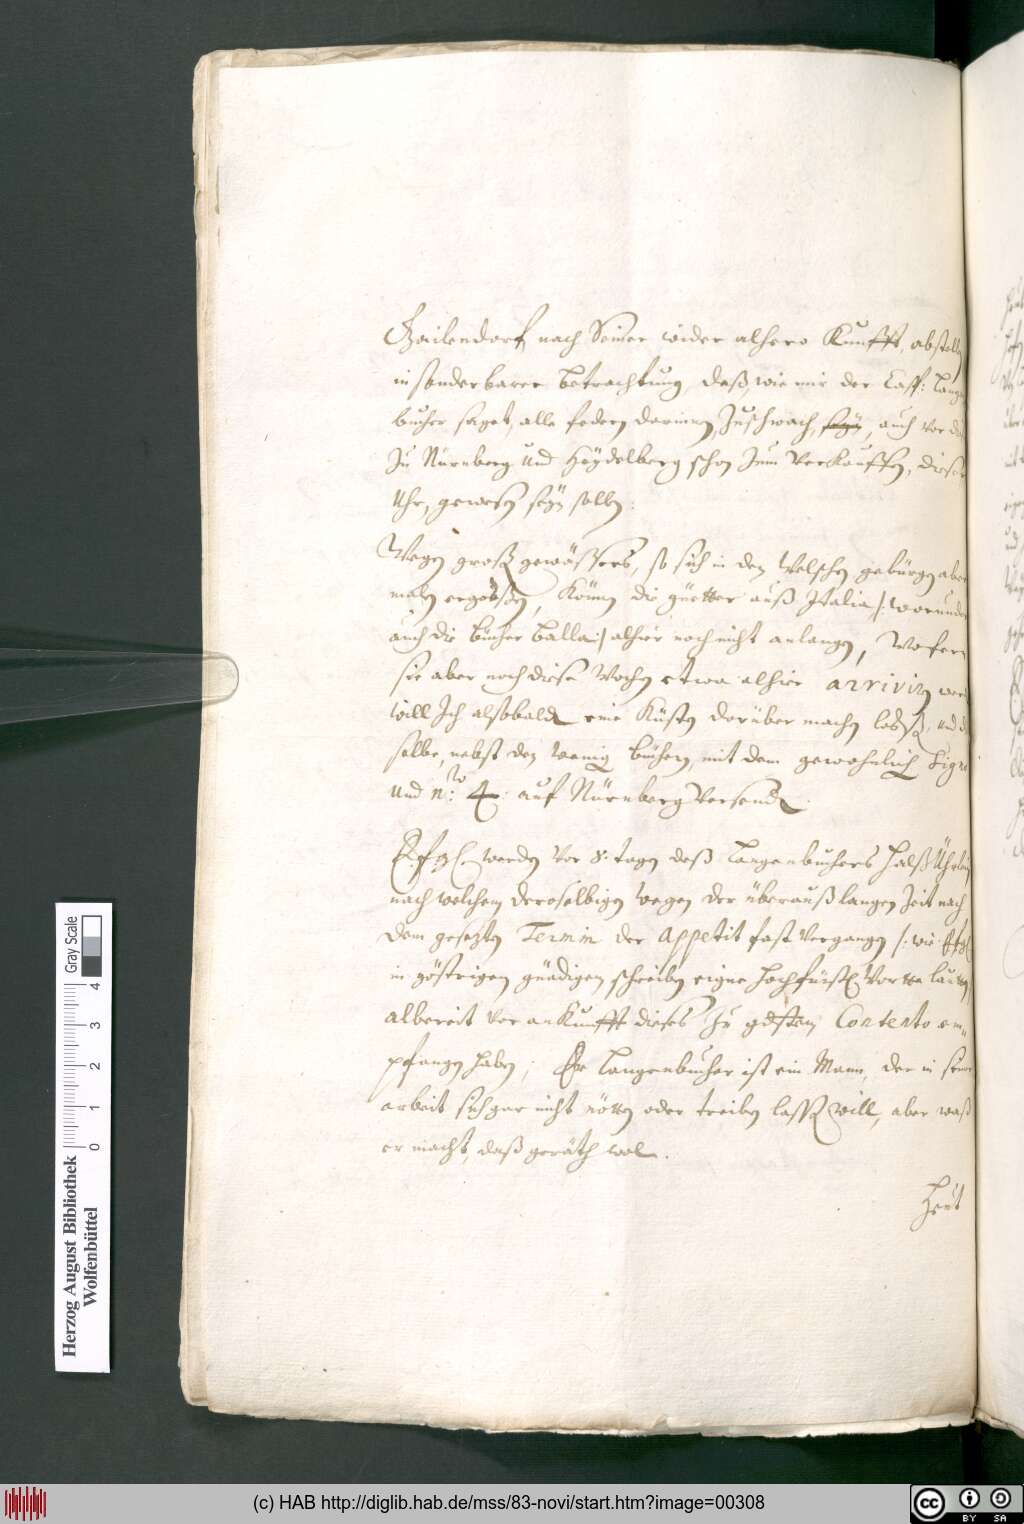 Gailendorf, nach Seiner wider alhero Kunfft, abstelle
in sonderbarer betrachtung, daß, wie mir der Cass: Lang
bucher saget, alle federn darinnen, zuschwach, seyn, auch vor
zu Nürnberg und Heydelberg schon zum verkauffen, diese
Uhr, gewesen seyn sollen.
Wegen groß gewässers, so sich in den Welschen gebürgen aber
maln ergossen, können die güetter auß Italia /: worunder
auch die bücher balla :/ alhier noch nicht anlangen, Wofern
sie aber noch diese Wochen etwa alhier arriviren
will Ich alsobald eine Küsten darüber machen lassen, und
selbe, nebst den wenig büchern, mit dem gewohnlich Sign
und No: 4: auf Nürnberg versenden.
E.f.g. werden vor 8. tagen deß Langenbuchers Halß Ührlin
nach welchem deroselbigen wegen der überauß langen Zeit nach
dem gesezten Termin der Appetit fast vergangen /: wie
in göstrigen gnädigen schreiben eigne hochfürstl. Wortte lautten
albereit vor ankunfft dieses zu gdstem Contento em-
pfangen haben; Er Langenbucher ist ein Mann, der in seiner
arbeit sich gar nicht nötten oder treiben lassen will, aber waß
er macht, daß geräth wol.
Heut
Herzog August Bibliothek
Wolfenbüttel
0 1 2 3 4
Gray Scale
(c) HAB http://diglib.hab.de/mss/83-novi/start.htm?image=00308
cc BY SA